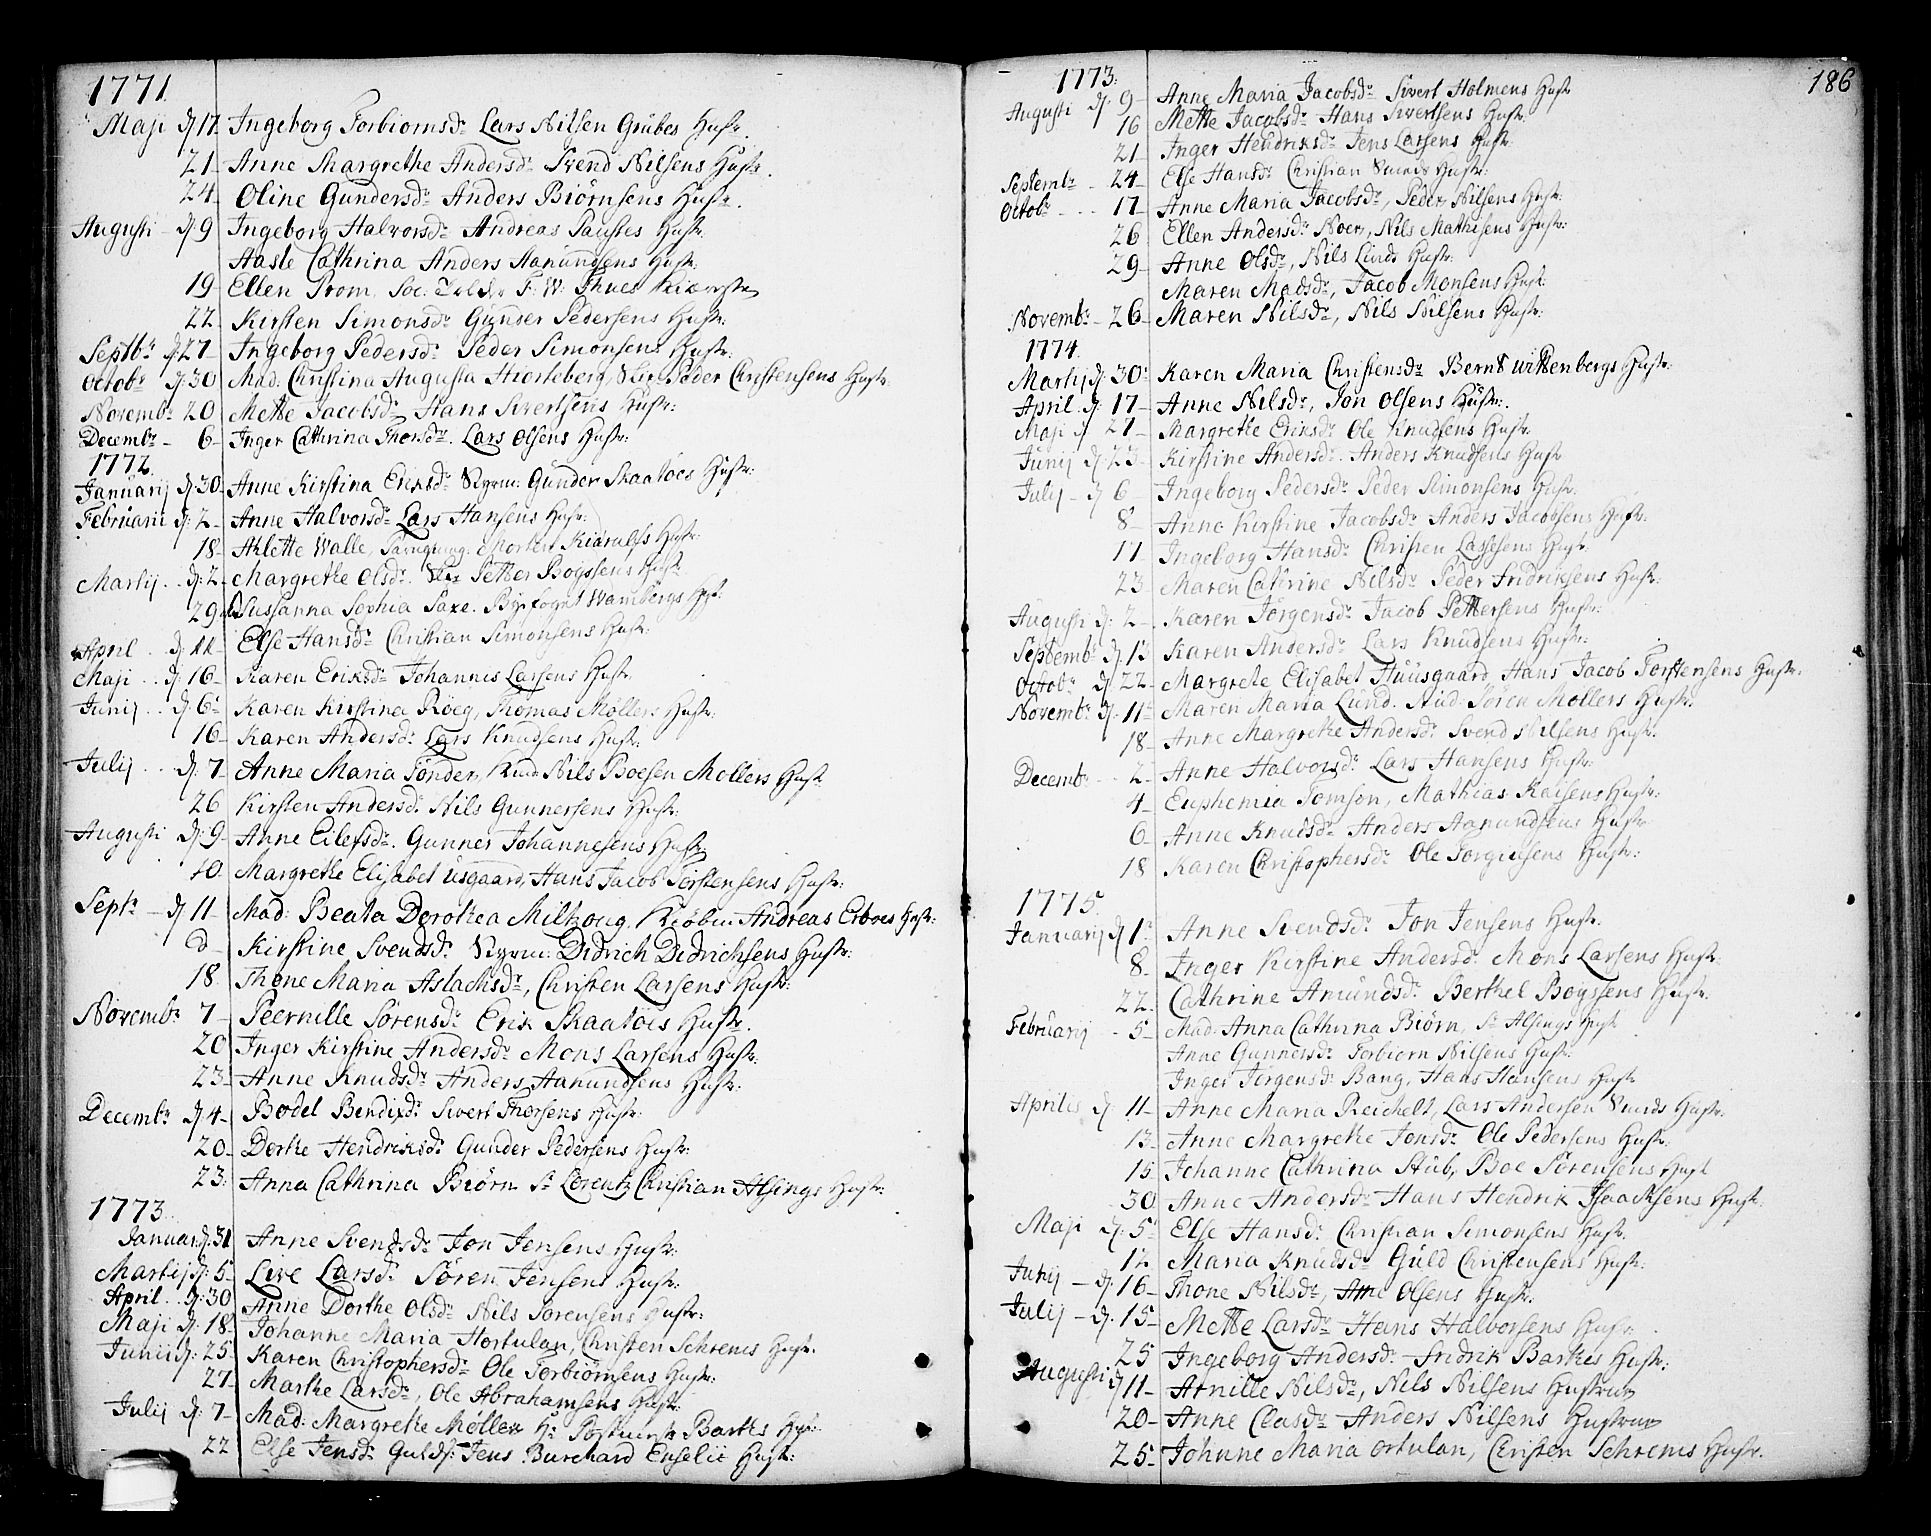 1771.
Maji d. 17. Ingeborg Torbiornsdr Lars Nilsen Grubes Hustr.
21. Anne Margrethe Andersdr Svend Nilsens Hustr.
24. Oline Gundersdr Anders Biörnsens Hustr.
Augusti d. 9 Ingeborg Halvorsdr Andreas Hustr.
Aasle Cathrina Anders Aanundsens Hustr:
19 Ellen Prom, F: W: Thues
22 Kirsten Simonsdr Gunder Pedersens Hustr:
Septbr d. 27 Ingeborg Pedersdr Peder Simonsens Hustr:
Octobr d. 30 Mad. Christina Augusta Hiorteberg, Peder Christensens Hustr.
Novembr 20 Mette Jacobsdr Hans Sivertsens Hustr:
Decembr - 6 Inger Cathrina Thorsdr. Lars Olsens Hustr:
1772.
Januarij d. 30 Anne Kirstina Eriksdr Styrm: Gunder Skaatöes Hustr:
Februarii d. 2 Anne Halvorsdr Lars Hansens Hustr:
18 Aklette Walle, Morten Hustr:
Martij d. 2 Margrethe Olsdr. Petter Boyssens Hustr
29 Susanna Sophia Saxe. Byefogat Wambergs Hustr:
April d. 11 Else Hansdr Christian Simonsens Hustr:
Maji d. 16 Karen Eriksdr Johannes Larsens Hustr.
Junij d. 6 Karen Kirstina Röeg, Thomas Möllers Hustr:
16 Karen Andersdr Lars Knudsens Hustr:
Julij d. 7 Anne Maria Tönder, Nils Boesen Mollers Hustr
26 Kirsten Andersdr Nils Gunnersens Hustr:
Augusti d. 9 Anne Eilefsdr. Gunner Johannesens Hustr:
10. Margrethe Elisabet Usgaard, Hans Jacob Torstensens Hustr:
Septr d. 11 Mad: Beata Dorothea Miltzoug, Andreas Erboes Hustr:
d Kirstine Svendsdr Styrm: Didrich Didrichsens Hustr:
18. Thone Maria Aslachsdr, Christen Larsens Hustr:
Novembr 7 Peernille Sörensdr Erik Skaatöes Hustr.
20 Inger Kirstine Andersdr Mons Larsens Hustr:
23 Anne Knudsdr Anders Aanundsens Hustr:
Decembr d. 4 Bodel Bendixdr Sivert Thorsens Hustr:
20 Dorthe Hendriksdr Gunder Pedersens Hustr:
23: Anna Cathrina Biörn Sr Lorentz Christian Alsings Hustr:
1773.
Januar: d. 31 Anne Svendsdr Jon Jensens Hustr:
Martij d: 5 Live Larsdr Sören Jensens Hustr:
April d: 30 Anne Dorthe Olsdr Nils Sörensens Hustr:
Maji d: 18 Johanne Maria Hortulan, Christen Schrems Hustr.
Junii d: 25 Karen Christophersdr Ole Torbiörnsens Hustr:
27 Marthe Larsdr, Ole Abrahamsens Hustr:
Julij d. 7 Mad: Margrethe Möller Hr Barkes Hustr.
22 Else Jensdr Guldsm: Jens Burchard Enselii Hustr:
186
1773:
Augusti d. 9 Anne Maria Jacobsdr Sivert Holmens Hustr
16 Mette Jacobsdr Hans Sivertsens Hustr:
21 Inger Hendriksdr Jens Larsens Hustr:
Septembr 24 Else Hansdr Christian Smeds Hustr:
Octobr 17 Anne Maria Jacobsdr, Peder Nilsens Hustr:
26 Ellen Andersdr Noer, Nils Mathisens Hustr:
29 Anne Olsdr, Nils Linds Hustr:
Maren Madsdr, Jacob Monsens Hustr:
Novembr 26 Maren Nilsdr, Nils Nilsens Hustr:
1774.
Martij d. 30 Karen Maria Christensdr Bernt Wittenbergs Hustr:
April d. 17 Anne Nilsdr, Jon Olsens Hustr:
Maji d 27 Margrethe Eriksdr Ole Knudsens Hustr:
Junij d. 23 Kirstine Andersdr. Anders Knudsens Hustr
Julij d 6 Ingeborg Pedersdr Peder Simonsens Hustr.
8 Anne Kirstine Jacobsdr Anders Jacobsens Hustr:
17 Ingeborg Hansdr Christen Lassesens Hustr.
23 Maren Cathrine Nilsdr Peder Fridriksens Hustr:
Augusti d: 2 Karen Jörgensdr Jacob Pettersens Hustr:
Septembr d. 13 Karen Andersdr Lars Knudsens Hustr:
Octobr d. 22 Margrete Elisabet Huusgaard, Hans Jacob Torstensens Hustr.
Novembr d. 11 Maren Maria Lund. Sören Mollers Hustr.
18 Anne Margrethe Andersdr Svend Nilsens Hustr.
Decembr 2 Anne Halvorsdr Lars Hansens Hustr:
4 Euphemia Tomson, Mathias Kaisens Hustr:
6 Anne Knudsdr Anders Aanundsens Hustr
18 Karen Christophersdr Ole Torgiusens Hustr:
1775.
Januarij d 1 Anne Svendsdr Jon Jensens Hustr.
8. Inger Kirstine Andersdr Mons Larsens Hustr:
22. Cathrine Amundsdr Berthel Boyssens Hustr.
Februarij 5 Mad: Anna Cathrina Biörn, Sr Alsings Hustr
Anne Gunnersdr Torbiorn Nilsens Hustr:
Inger Jörgensdr Bang, Hans Hansens Hustr
Aprilis d. 11 Anne Maria Reichelt, Lars Andersen Smeds Hustr:
13 Anne Margrethe Jonsdr Ole Pedersens Hustr:
15 Johanne Cathrina Stub, Boe Sörensens Hustr
30 Anne Andersdr Hans Hendrik Isaachsens Hustr.
Maji d. 5 Else Hansdr Christian Simonsens Hustr.
12 Maria Knudsdr Guld Christensens Hustr:
Junij d. 16 Thone Nilsdr, Olsens Hustr:
Julij d. 15 Mette Larsdr Hans Halvorsens Hustr.
25 Ingeborg Andersdr Fridrik Barkes Hustr:
Augusti d 11 Arnille Nilsdr, Nils Nilsens Hustrue
20 Anne Clasdr Anders Nilsens Hustrue
25 Johnne Maria Ortulan, Christen Schrems Hustr.